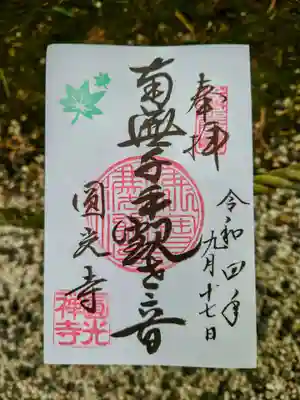 奉拝
令和四年
九月十七日
南無千手観世音
圓光寺
圓光
禪寺